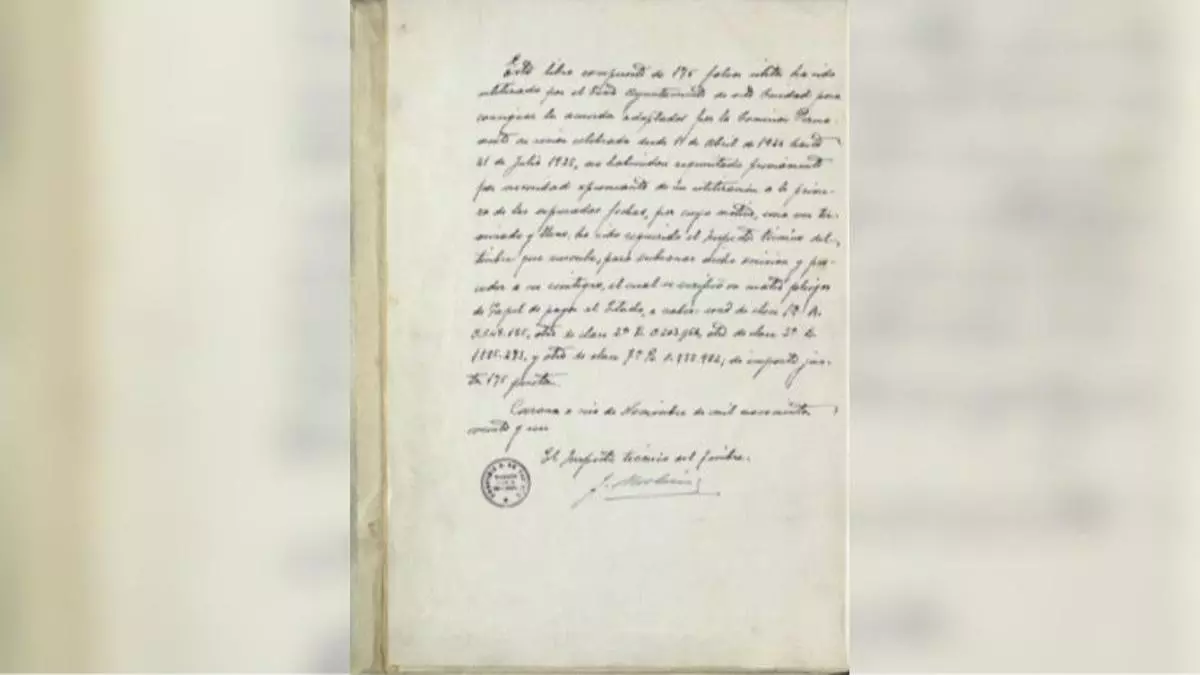 Este libro compuesto de 195 folios útiles ha sido
utilizado por el Excmo Ayuntamiento de esta Ciudad para
consignar los acuerdos adoptados por la Comisión Perma-
nente en sesión celebrada desde 11 de Abril de 192 hasta
21 de Julio 192, no habiendose reintegrado previamente
por necesidad apremiante de su utilización a la prime-
ra de las expresadas fechas, por cuyo motivo, una vez ter-
minado y lleno, ha sido requerido el Inspector técnico del
timbre que suscribe, para subsanar dicha omisión y pro-
ceder a su reintegro, el cual se verificó en cuatro pliegos
de Papel de pagos al Estado, a saber: uno de clase
otro de clase 2ª otro de clase 3ª
y otro de clase 7ª de importe jun-
tos 195 pesetas.
a seis de Noviembre de mil novecientos
veinte y
El Inspector técnico del Timbre.
J.